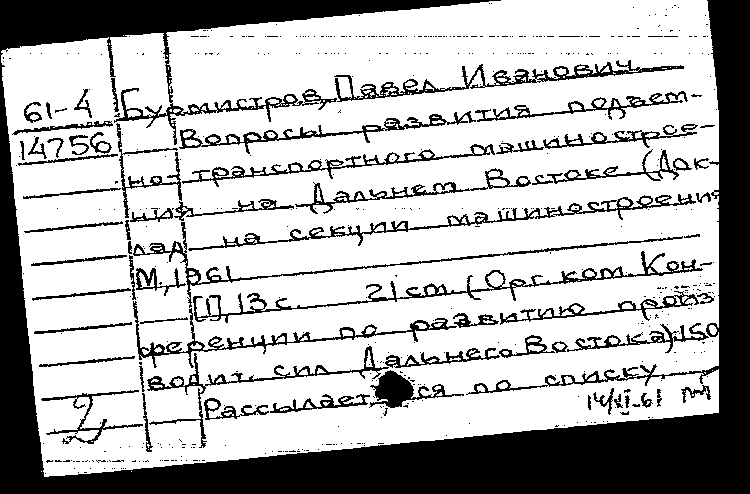 61-4 Бурмистров, Павел Иванович
14756 Вопросы развития подъем-
но-транспортного машинострое-
ния на Дальнем Востоке. (Док-
лад на секции машиностроения
М, 1961
[1], 13 с. 21 cm. (Орг. ком. Кон-
ференции по развитию произ
водит. сил Дальнего Востока). 150
Рассылается по списку.
2 14/VI-61